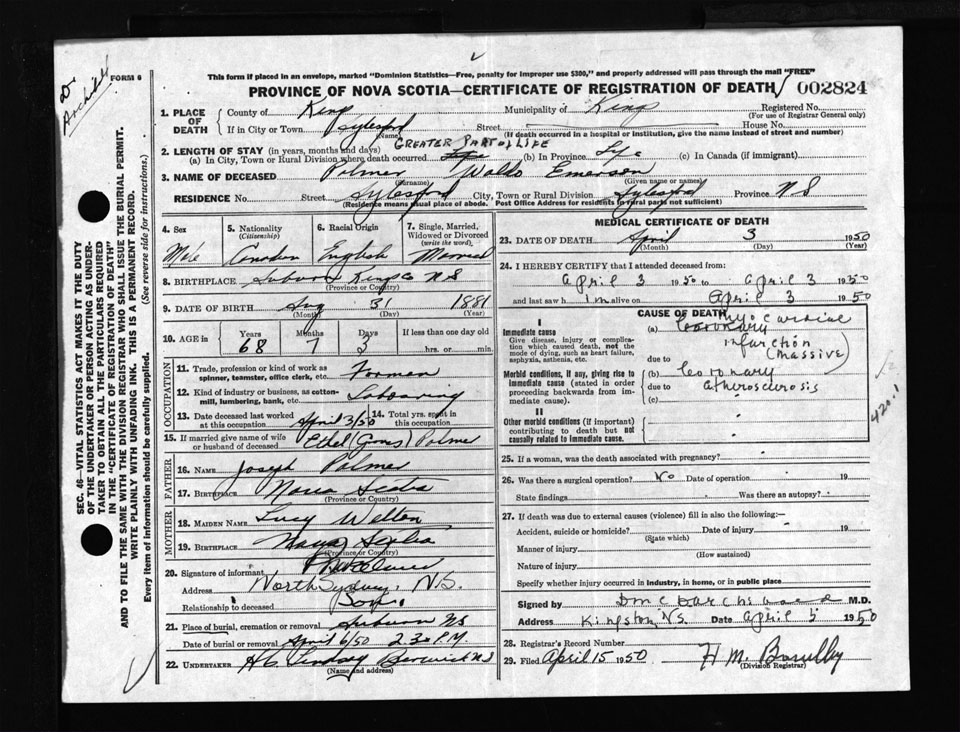 Dr Archibald
FORM 6
This form if placed in an envelope, marked "Dominion Statistics—Free, penalty for improper use $300," and properly addressed will pass through the mail "FREE"
PROVINCE OF NOVA SCOTIA—CERTIFICATE OF REGISTRATION OF DEATH 002824
SEC. 46—VITAL STATISTICS ACT MAKES IT THE DUTY
OF THE UNDERTAKER OR PERSON ACTING AS UNDER-
TAKER TO OBTAIN ALL THE PARTICULARS REQUIRED
IN THE "CERTIFICATE OF REGISTRATION OF DEATH"
AND TO FILE THE SAME WITH THE DIVISION REGISTRAR WHO SHALL ISSUE THE BURIAL PERMIT.
WRITE PLAINLY WITH UNFADING INK. THIS IS A PERMANENT RECORD.
Every item of information should be carefully supplied. (See reverse side for instructions.)
1. PLACE OF DEATH
County of King Municipality of King Registered No.
(For use of Registrar General only)
If in City or Town Aylesford Street House No.
(Name) (If death occurred in a hospital or institution, give the name instead of street and number)
2. LENGTH OF STAY (in years, months and days) GREATER PART OF LIFE
(a) In City, Town or Rural Division where death occurred Life (b) In Province Life (c) In Canada (if immigrant)
3. NAME OF DECEASED Palmer Waldo Emerson
(Surname) (Given name or names)
RESIDENCE No. Street Aylesford City, Town or Rural Division Aylesford Province N S
(Residence means usual place of abode. Post Office Address for residents in rural parts not sufficient)
4. Sex
Male
5. Nationality
(Citizenship)
Canadian
6. Racial Origin
English
7. Single, Married,
Widowed or Divorced
(write the word)
Married
8. BIRTHPLACE Auburn Kings Co N S
(Province or Country)
9. DATE OF BIRTH Aug 31 1881
(Month) (Day) (Year)
10. AGE in Years Months Days If less than one day
68 7 3 hrs. or min.
OCCUPATION
11. Trade, profession or kind of work as
spinner, teamster, office clerk, etc. Foreman
12. Kind of industry or business, as cotton-
mill, lumbering, bank, etc. Labouring
13. Date deceased last worked
at this occupation April 3/50
14. Total yrs. spent in
this occupation
15. If married give name of wife
or husband of deceased Ethel Palmer
FATHER
16. NAME Joseph Palmer
17. BIRTHPLACE Nova Scotia
(Province or Country)
MOTHER
18. MAIDEN NAME Lucy Welton
19. BIRTHPLACE Nova Scotia
(Province or Country)
20. Signature of informant
Address North Sydney, N.S.
Relationship to deceased Son
21. Place of burial, cremation or removal Auburn NS
Date of burial or removal April 6/50 2.30 P.M.
22. UNDERTAKER Lindsay Berwick N S
(Name and address)
MEDICAL CERTIFICATE OF DEATH
23. DATE OF DEATH April 3 1950
(Month) (Day) (Year)
24. I HEREBY CERTIFY that I attended deceased from:
April 3 1950 to April 3 1950
and last saw him alive on April 3 1950
CAUSE OF DEATH
I
Immediate cause
Give disease, injury or complica-
tion which caused death, not the
mode of dying, such as heart failure,
asphyxia, asthenia, etc.
(a) Coronary
Myocardial
infarction
(massive)
due to
Morbid conditions, if any, giving rise to
immediate cause (stated in order
proceeding backwards from im-
mediate cause).
(b) Coronary
due to Atherosclerosis
(c)
II
Other morbid conditions (if important)
contributing to death but not
causally related to immediate cause.
420.1
25. If a woman, was the death associated with pregnancy?
26. Was there a surgical operation? No Date of operation 19
State findings Was there an autopsy?
27. If death was due to external causes (violence) fill in also the following:—
Accident, suicide or homicide? Date of injury 19
(State which)
Manner of injury
(How sustained)
Nature of injury
Specify whether injury occurred in industry, in home, or in public place
Signed by M.D.
Address Kingston, N.S. Date April 5 1950
28. Registrar's Record Number
29. Filed April 15 1950 H M
(Division Registrar)